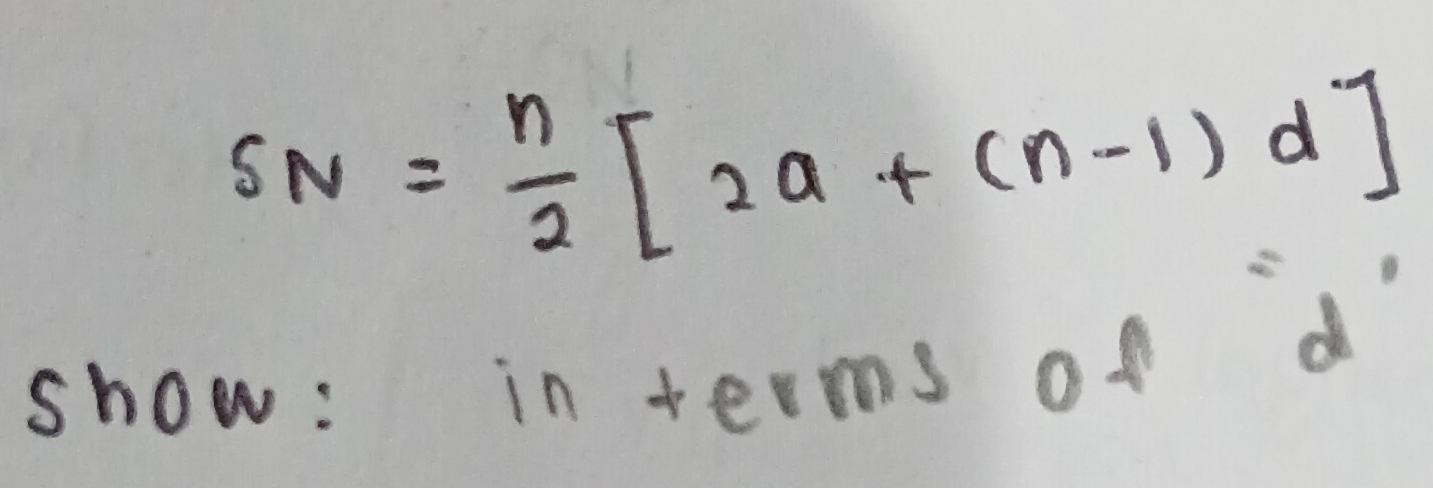 SN = n/2 [ 2a + (n-1) d ]
show: in terms of "d"